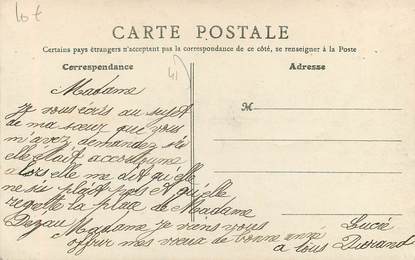 Lot
CARTE POSTALE
Certains pays étrangers n'acceptant pas la correspondance de ce côté, se renseigner à la Poste
Correspondance
41
Adresse
Madame
Je vous écris au sujet
de ma sœur que vous
m'avez demandez si
elle était accoutumé
alors elle me dit qu'elle
ne si plait pas et qu'elle
regette la place de Madame
Madame je viens vous
offrir mes vœux de bonne anné
a tous
Lucie
Durand
M